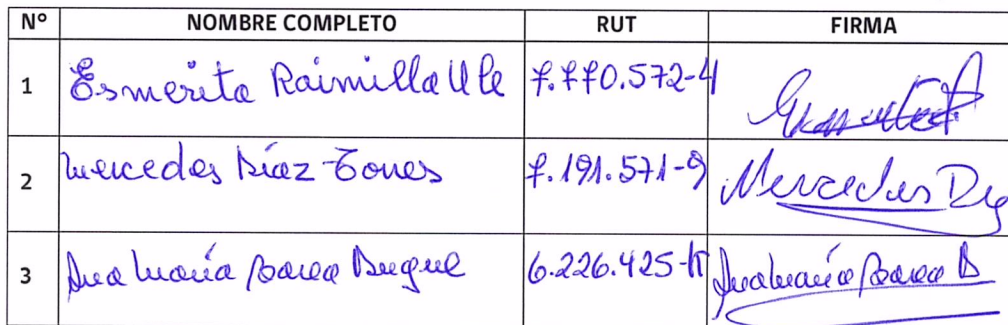 N° NOMBRE COMPLETO RUT FIRMA
1 Esmerita Raimilla Ule 7.770.572-4
2 Mercedes Díaz Torres 7.191.571-9 Mercedes D
3 Ana María Baeza 6.226.425-K Ana María Baeza D